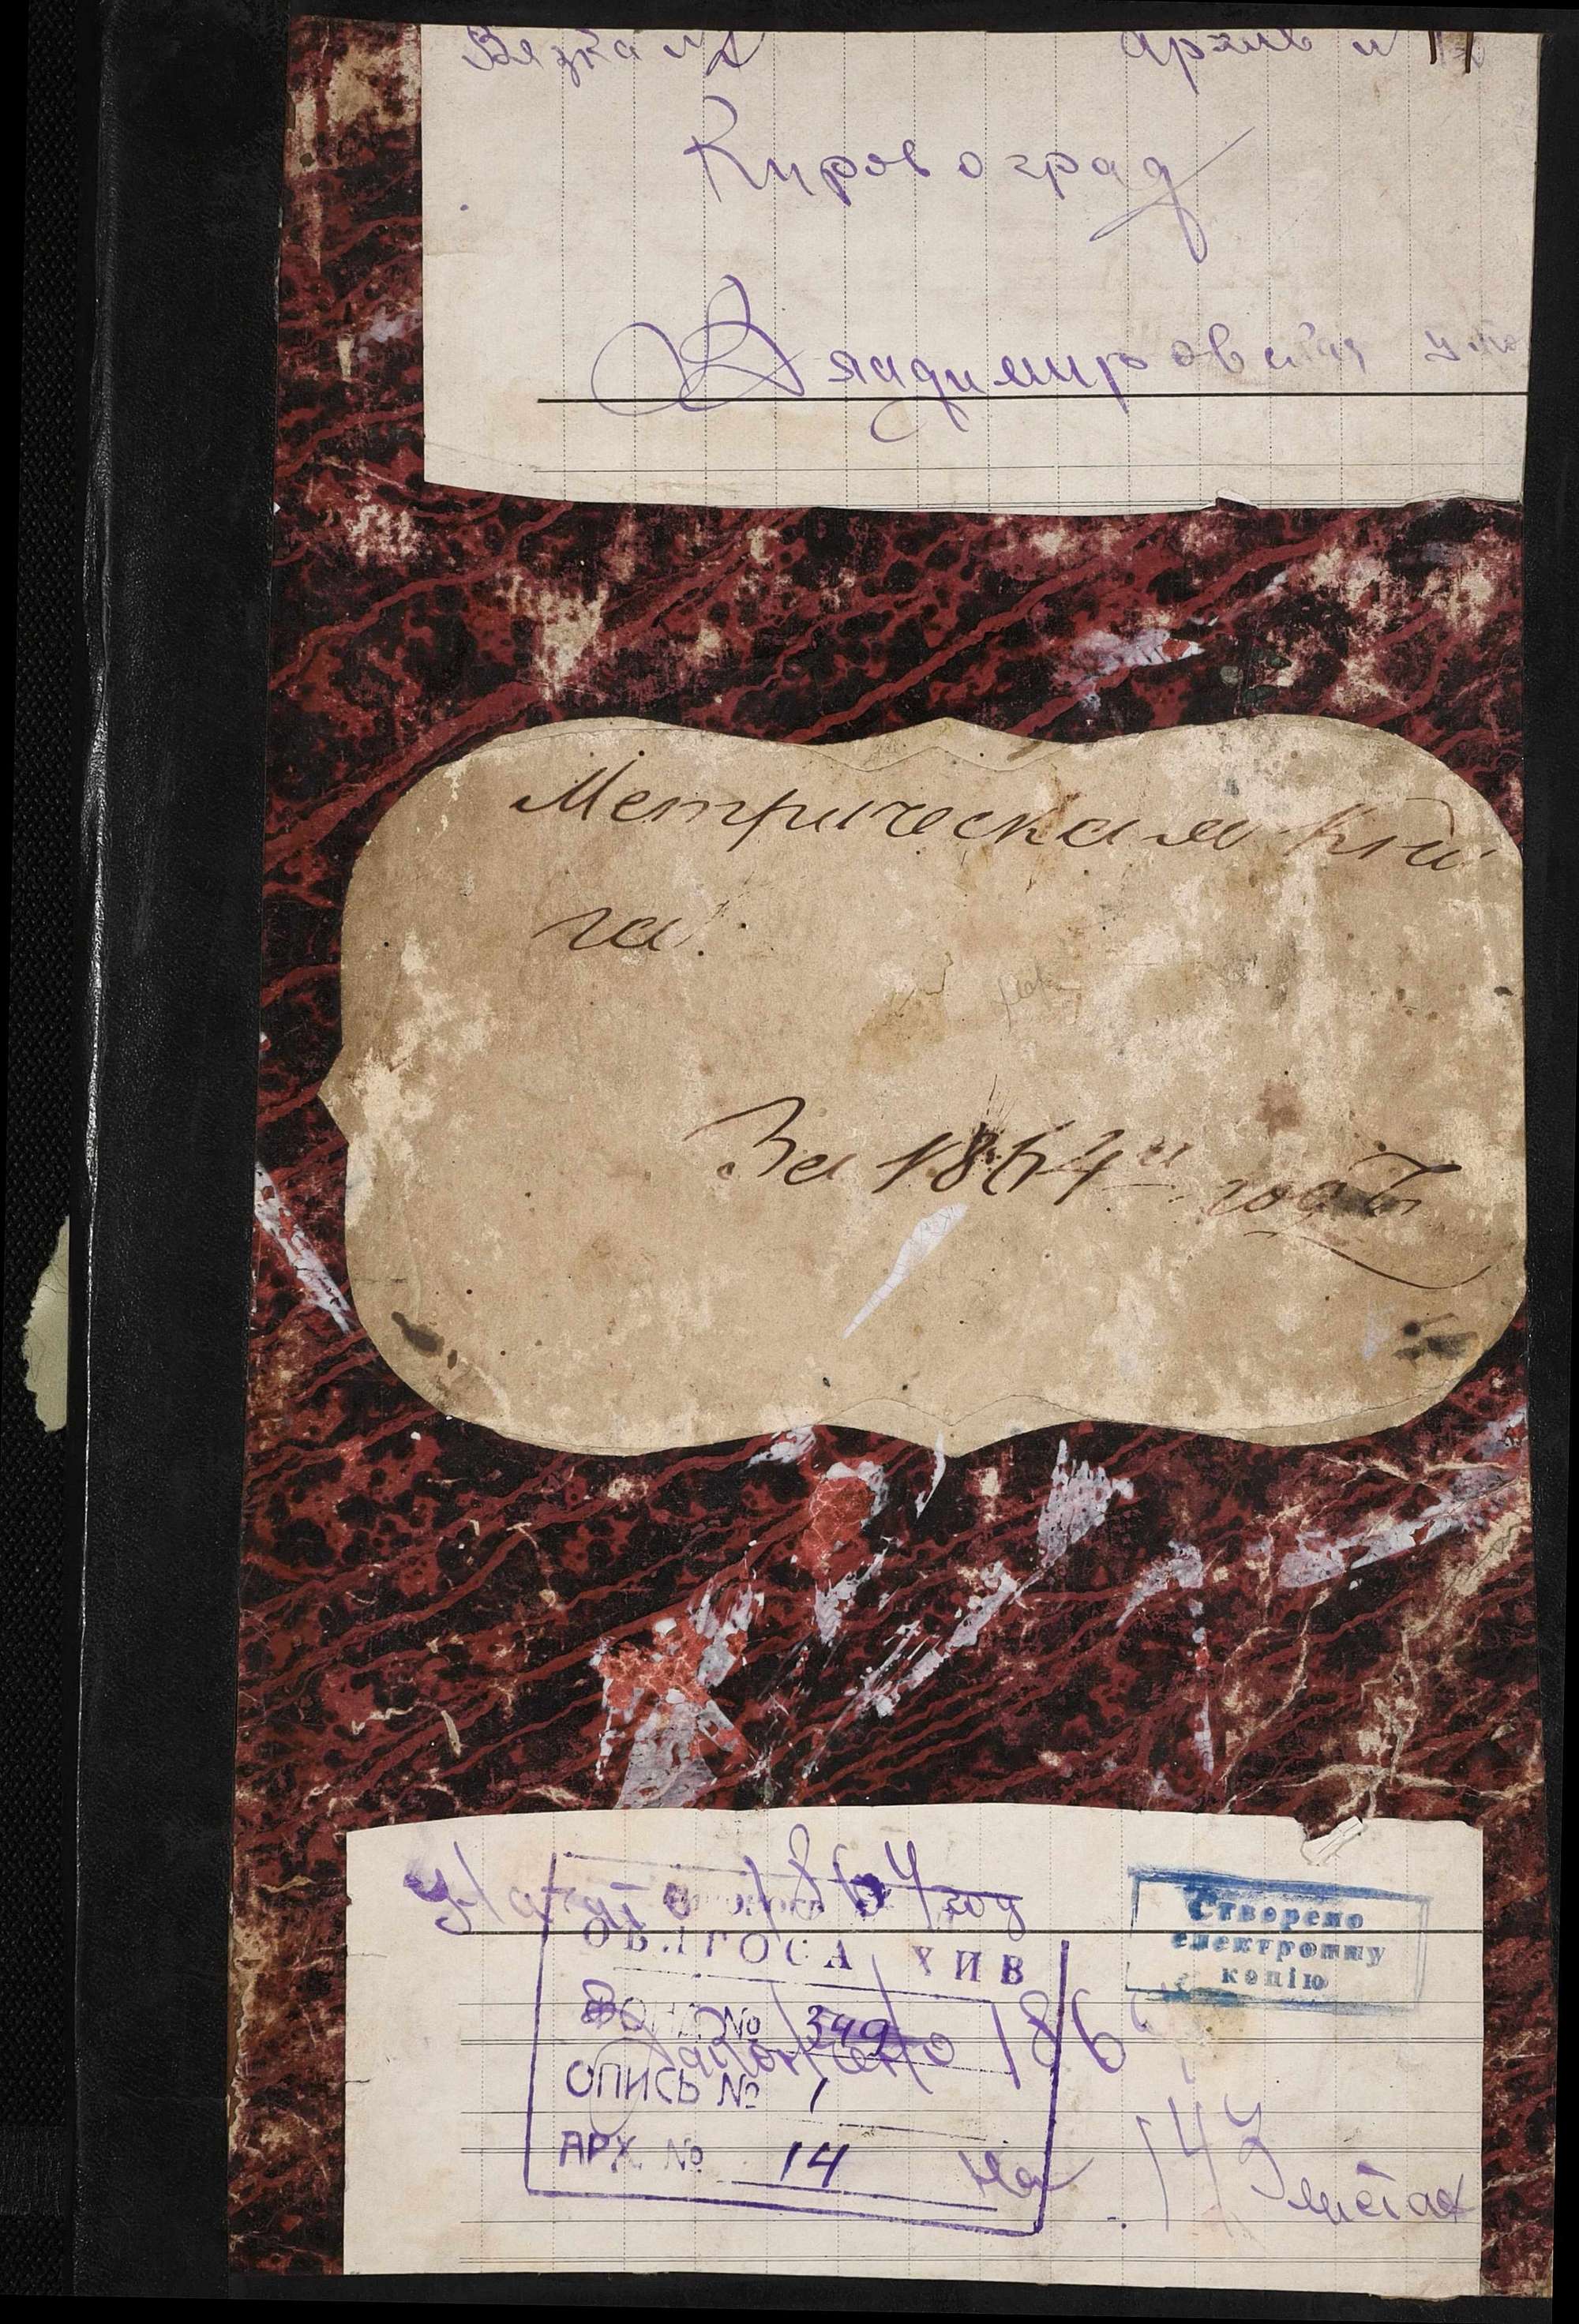 Вязка № Архив №
Кировоград
Владимировская
Метрическая кни
га.
За 1864й годъ
Начато 1864 год
ОБЛГОСАРХИВ
Створено
електронну
копію
ФОНД № 349
Закончено 186
ОПИСЬ № 1
АРХ. № 14
На 143 листах